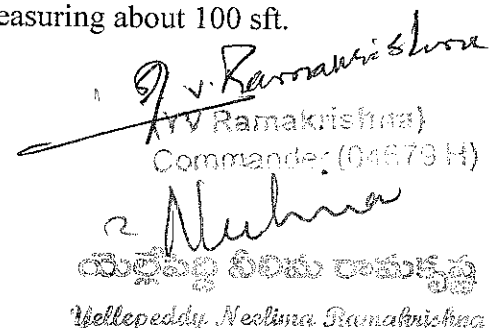 easuring about 100 sft.
V. Ramakrishna
(YV Ramakrishna)
Commander (04679 H)
2 Neelima
యెల్లేపెద్ది నీలిమ రామకృష్ణ
Yellepeddy Neelima Ramakrishna